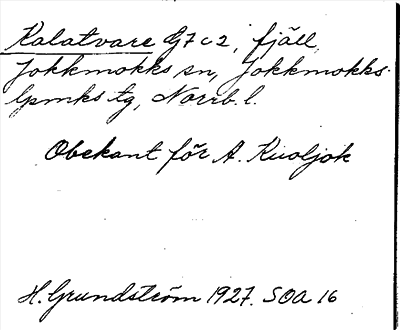 Kalatvare G7c2, fjäll,
Jokkmokks sn, Jokkmokks
lpmks tg, Norrb. l.
Obekant för A. Kuoljok
H. Grundström 1927. SOA 16